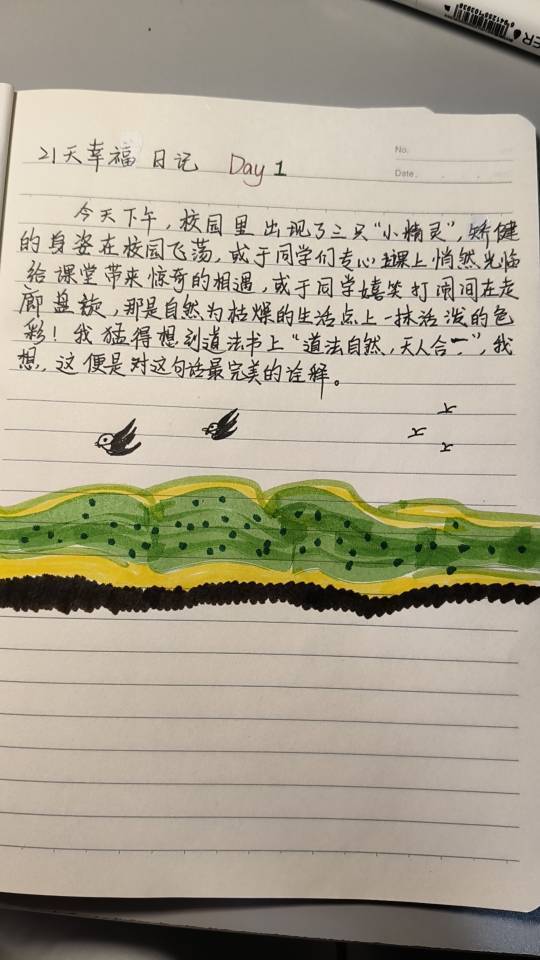 No.
21天幸福日记 Day 1
Date.
今天下午，校园里出现了三只“小精灵”，矫健
的身姿在校园飞荡，或于同学们专心课上悄然光临
给课堂带来惊奇的相遇，或于同学嬉笑打闹间在走
廊盘旋，那是自然为枯燥的生活点上一抹活泼的色
彩！我猛得想到道法书上“道法自然，天人合一”，我
想，这便是对这句话最完美的诠释。